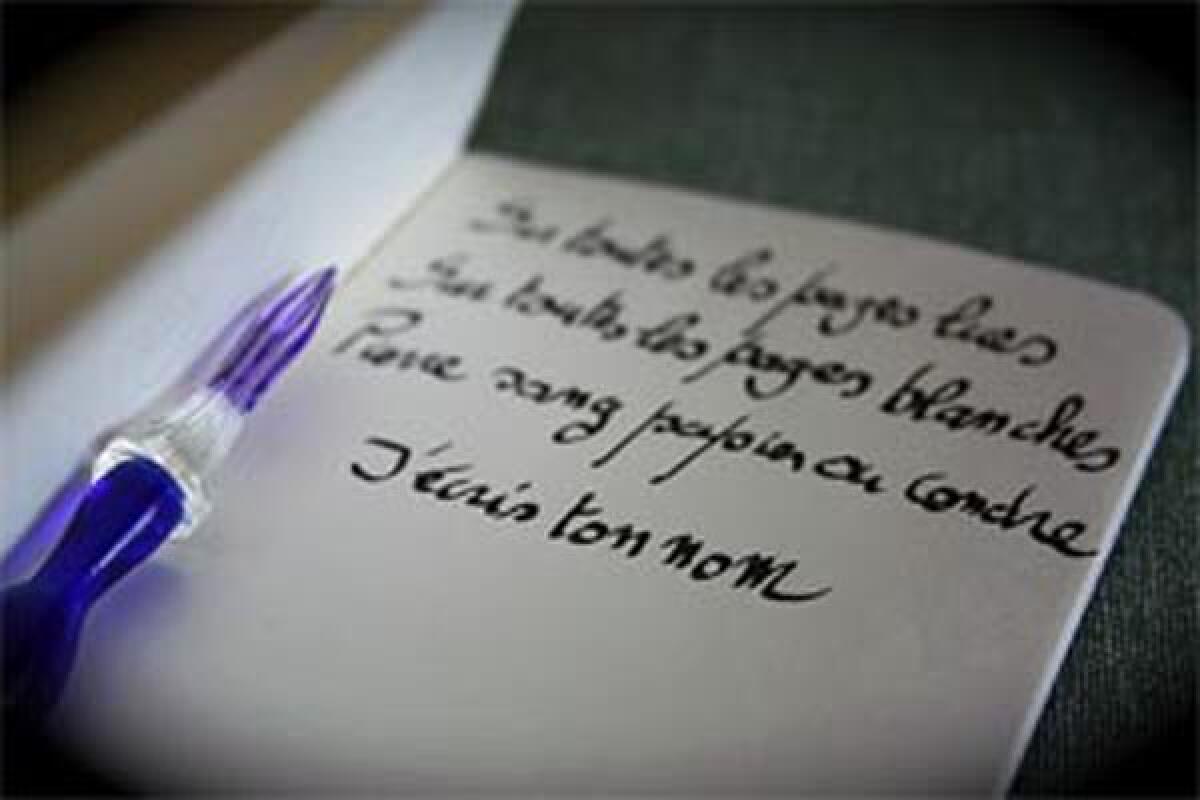 Sur toutes les pages lues
Sur toutes les pages blanches
Pierre sang papier ou cendre
J'écris ton nom